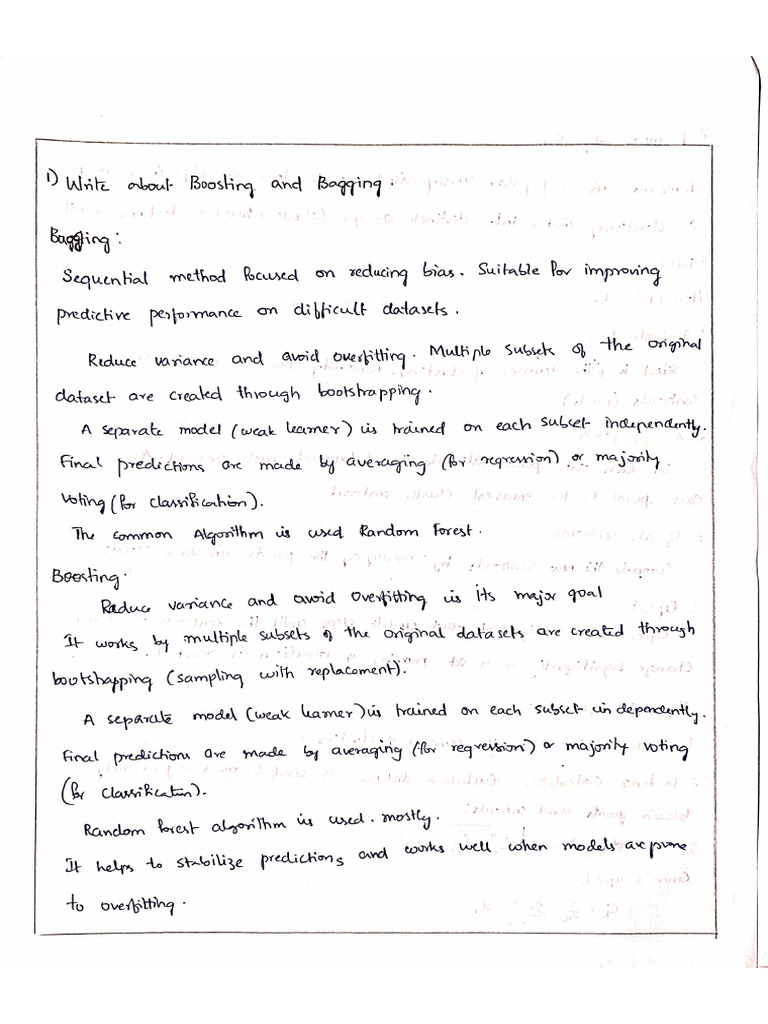 1) Write about Boosting and Bagging.
Bagging:
Sequential method focused on reducing bias. Suitable for improving
predictive performance on difficult datasets.
Reduce variance and avoid overfitting. Multiple subsets of the original
dataset are created through bootstrapping.
A separate model (weak learner) is trained on each subset independently.
Final predictions are made by averaging (for regression) or majority
voting (for classification).
The common Algorithm is used Random Forest.
Boosting.
Reduce variance and avoid overfitting is its major goal
It works by multiple subsets of the original datasets are created through
bootstrapping (sampling with replacement).
A separate model (weak learner) is trained on each subset independently.
Final predictions are made by averaging (for regression) or majority voting
(for classification).
Random forest algorithm is used. mostly.
It helps to stabilize predictions and works well when models are prone
to overfitting.